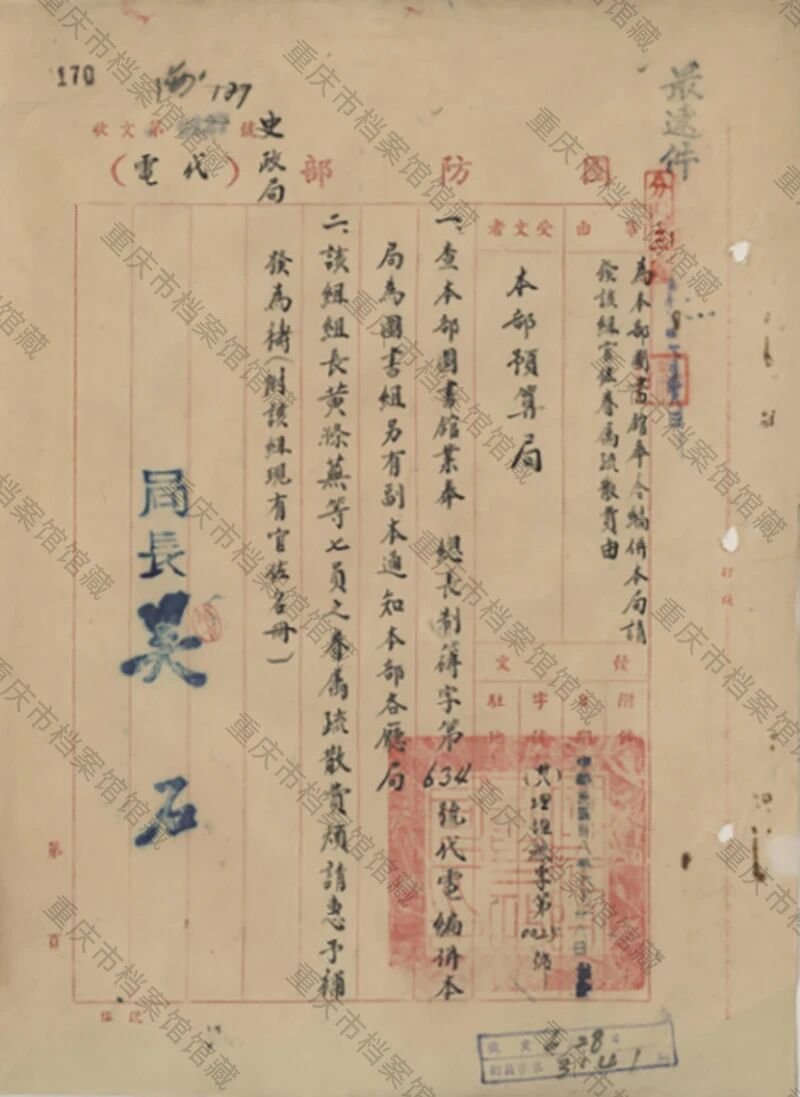 170
137
收文第 號
最速件
國防部史政局（代電）
事由
為本部圖書館奉令編併本局請
發該組官佐眷屬疏散費由
受文者
本部預算局
發文
附件
日期
字號
駐地
中華民國卅八年 月廿六日
字第0025號
一、查本部圖書館業奉 總長制 字第634號代電編併本
局為圖書組另有副本通知本部各廳局
二、該組組長黃滌蕪等七員之眷屬疏散費煩請惠予補
發為荷（附該組現有官佐名冊）
局長吳石
第 頁
收文 28
3541
重庆市档案馆馆藏